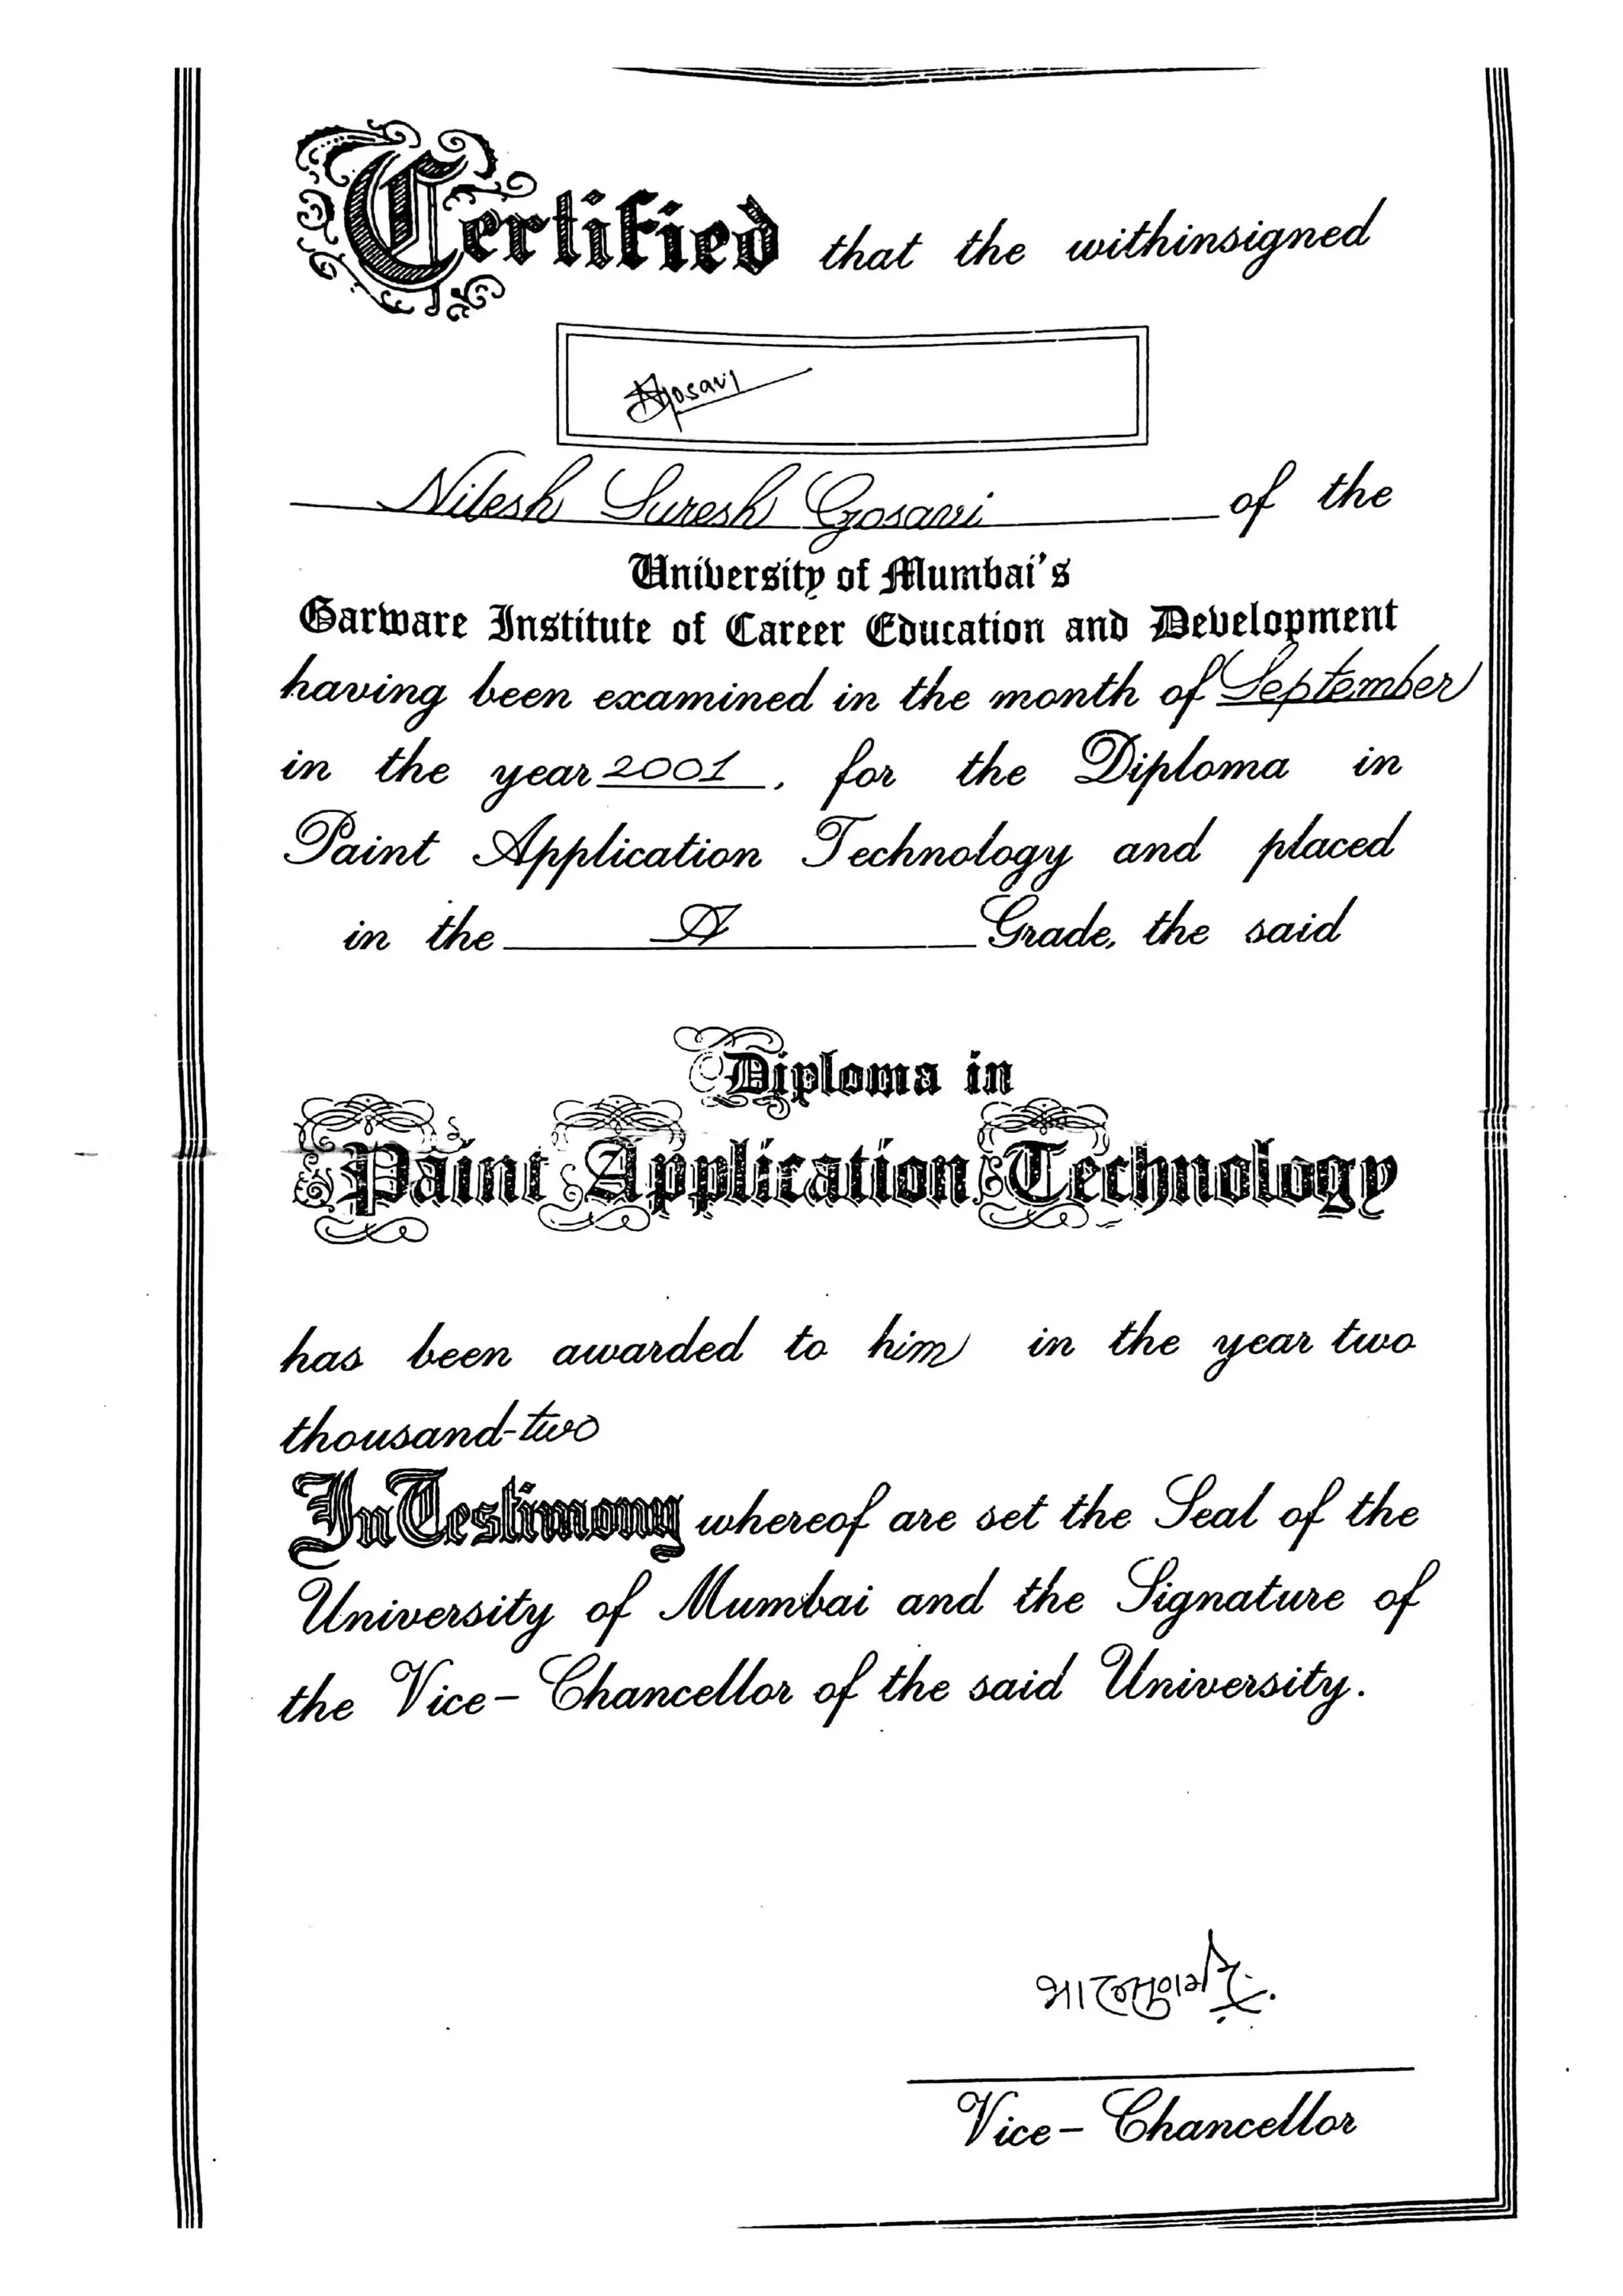 Certified that the withinsigned
NGosavi
Nilesh Suresh Gosavi of the
University of Mumbai's
Garware Institute of Career Education and Development
having been examined in the month of September
in the year 2001, for the Diploma in
Paint Application Technology and placed
in the A Grade, the said
Diploma in
Paint Application Technology
has been awarded to him in the year two
thousand-two
In Testimony whereof are set the Seal of the
University of Mumbai and the Signature of
the Vice-Chancellor of the said University.
Vice-Chancellor